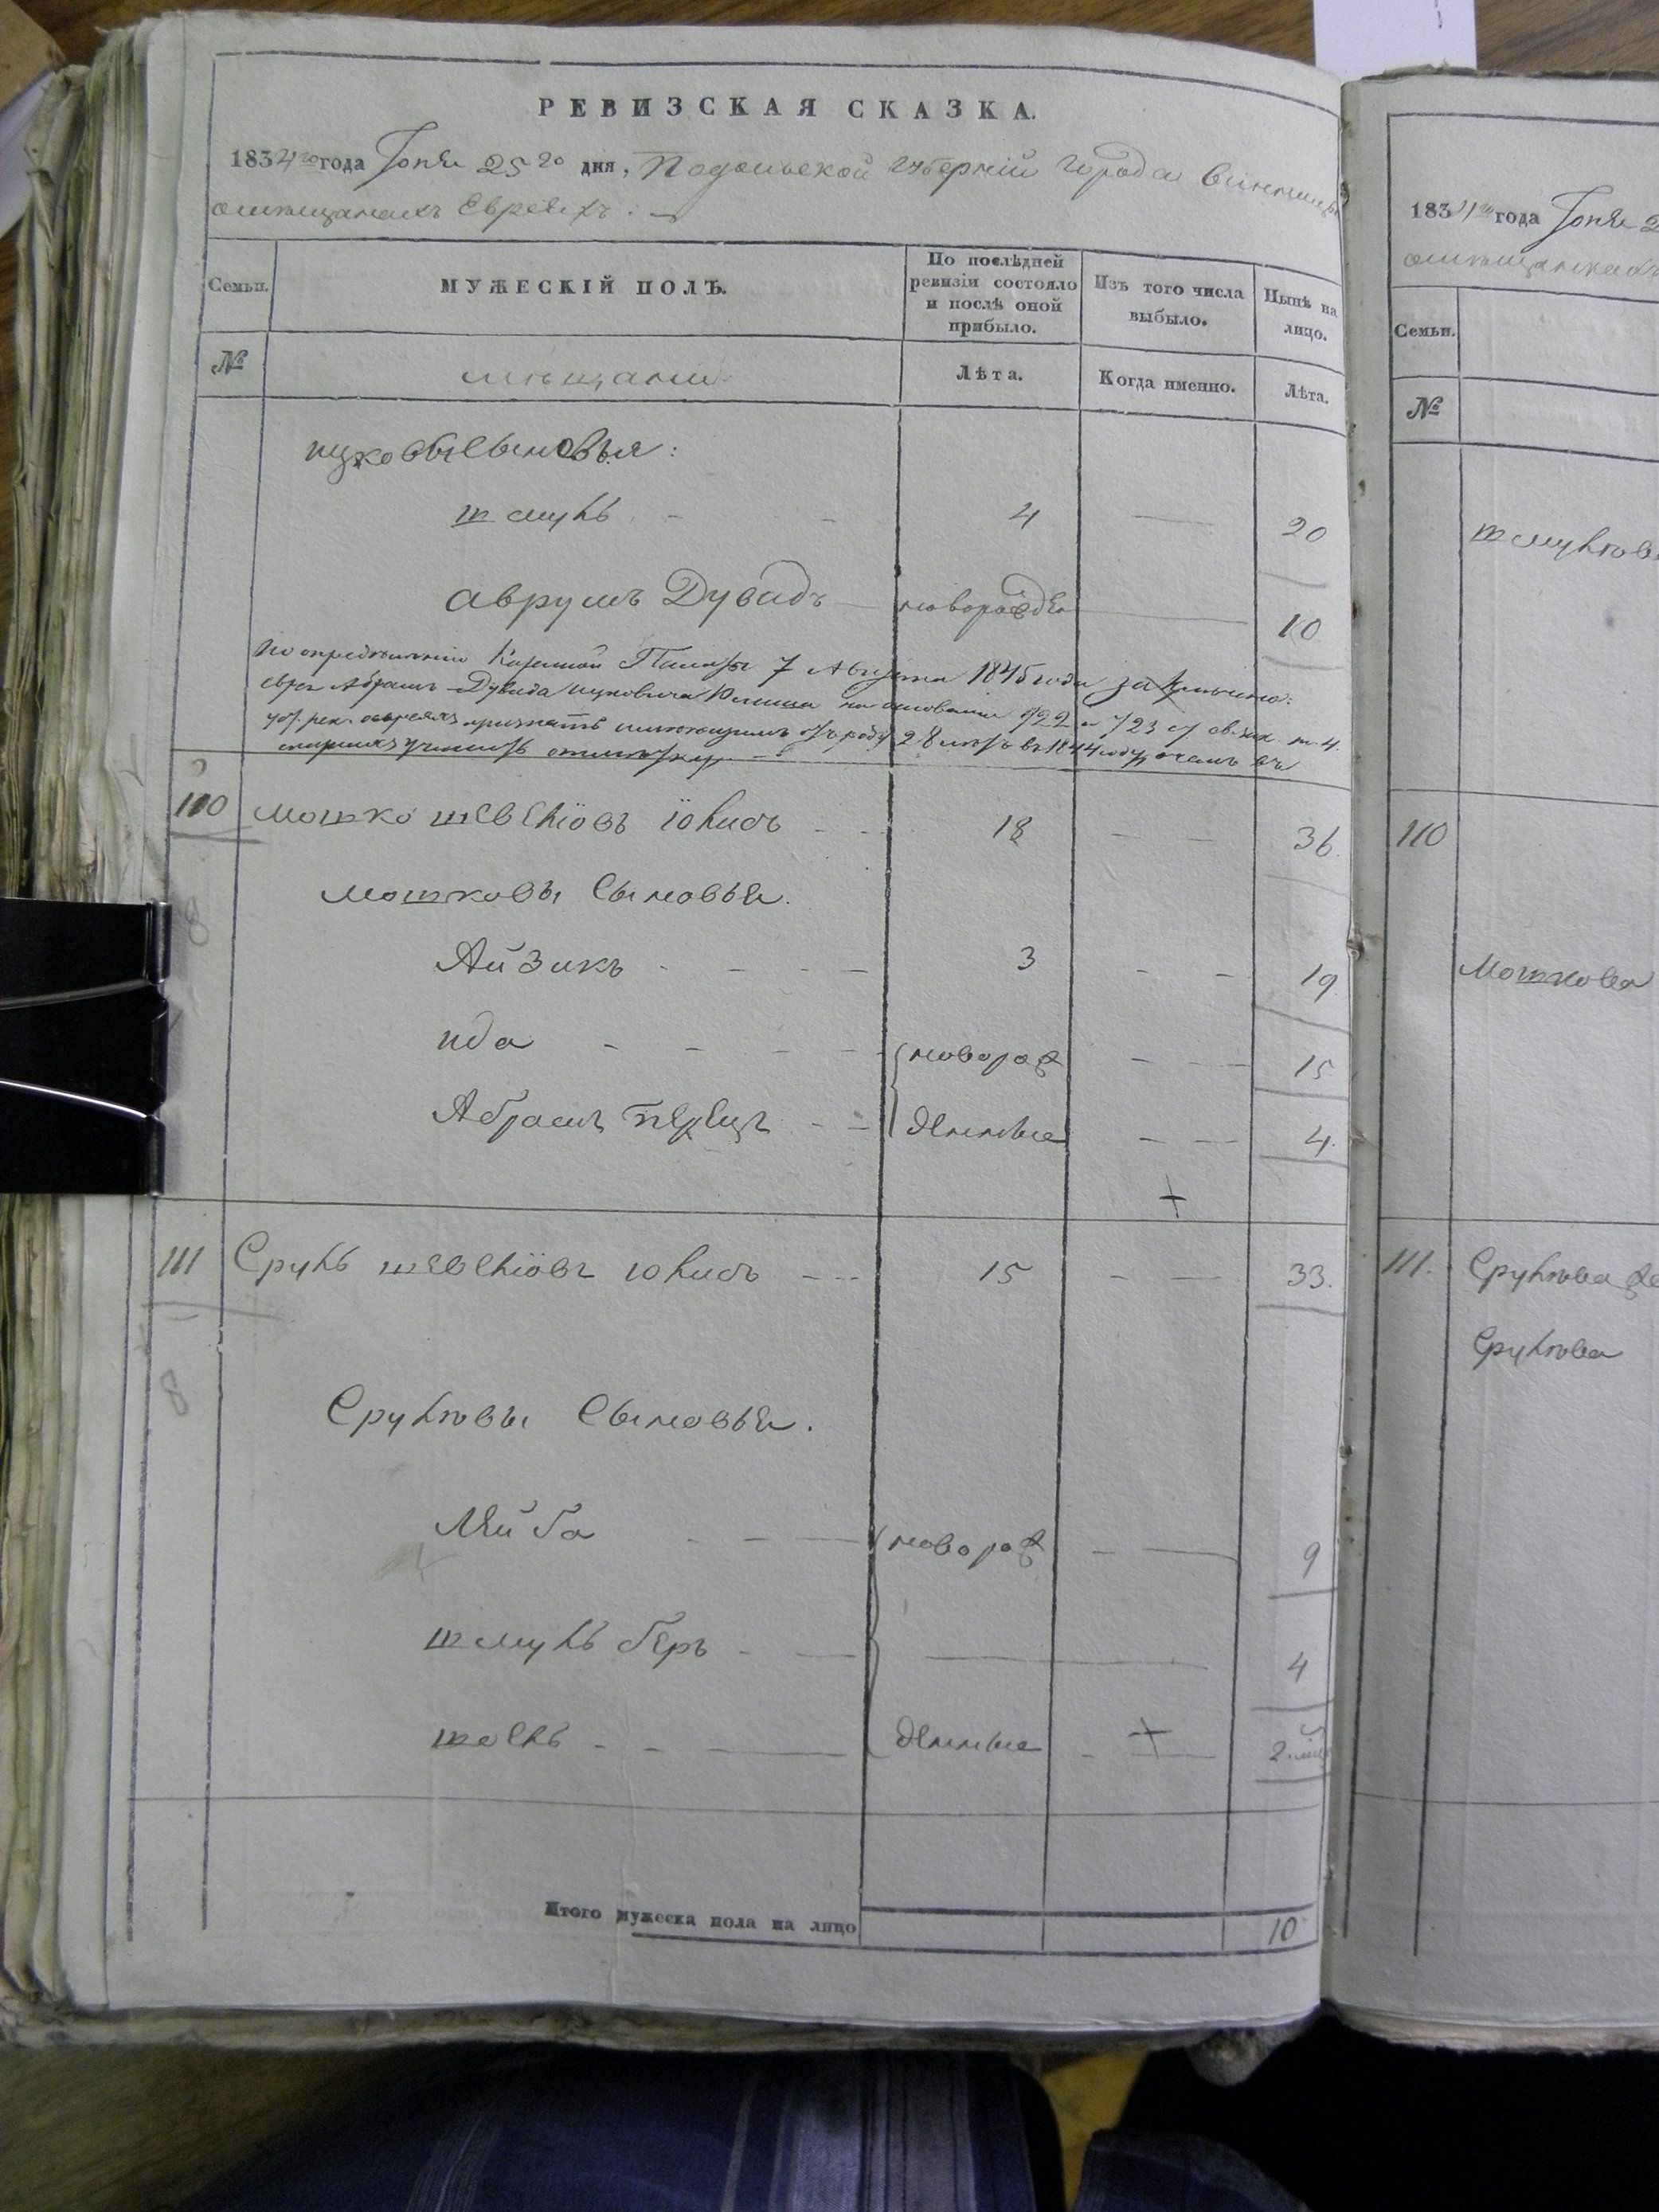 РЕВИЗСКАЯ СКАЗКА.
1834го года Іюня 25го дня, Подольской губерніи города Винницы
омѣщанахъ Евреяхъ:
Семьи.
МУЖЕСКІЙ ПОЛЪ.
По послѣдней ревизіи состояло и послѣ оной прибыло.
Изъ того числа выбыло.
Нынѣ на лицо.
№
мѣщани
Лѣта.
Когда именно.
Лѣта.
ицковы Сыновья:
шмуль 4 20
аврумъ Дувидъ новорожде 10
По опредѣленію Казенной Палаты 7 Августа 1845 года заключено:
евре Абрамъ Дувида Ицковича на основаніи 722 и 723 ст св. зак. т. 4.
уст. рек. оевреяхъ признать имѣющимъ отъ роду 28 лѣтъ въ 1844 году, очемъ въ
учинить отмѣтку
110 мошко шевеліовъ іолисъ 18 36.
мошковы Сыновья.
Айзикъ 3 19.
ида новорож 15
Абрамъ перецъ денные 4.
111 Сруль шевеліовъ юлисъ 15 33.
Срулевы Сыновья.
Лейба новорож 9
шмуль беръ 4
іоель денные 2. мѣс
Итого мужеска пола на лицо 10
1834го года Іюня 2
омѣщанкахъ
Семьи.
№
шмулева
110
Мошкова
111. Срулева же
Срулева